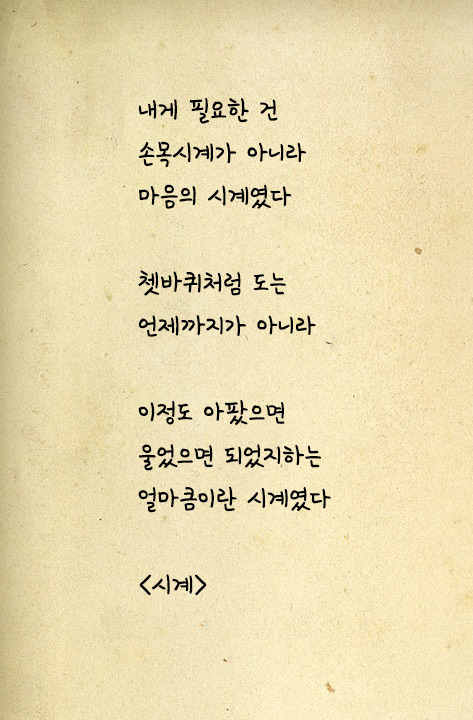 내게 필요한 건
손목시계가 아니라
마음의 시계였다
쳇바퀴처럼 도는
언제까지가 아니라
이정도 아팠으면
울었으면 되었지하는
얼마큼이란 시계였다
<시계>